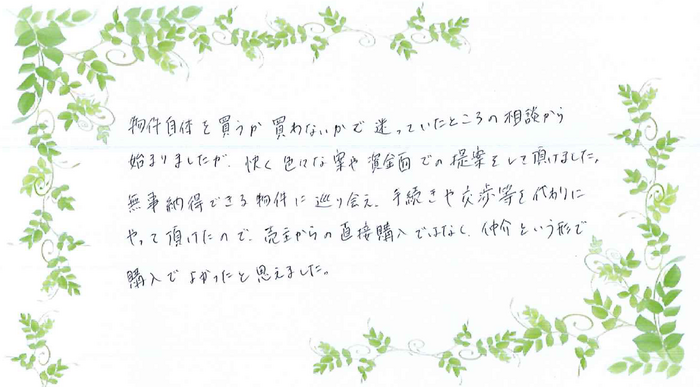 物件自体を買うか買わないかで迷っていたところの相談から
始まりましたが、快く色々な案や資金面での提案をして頂けました。
無事納得できる物件に巡り会え、手続きや交渉等を代わりに
やって頂けたので、売主からの直接購入ではなく、仲介という形で
購入でよかったと思えました。